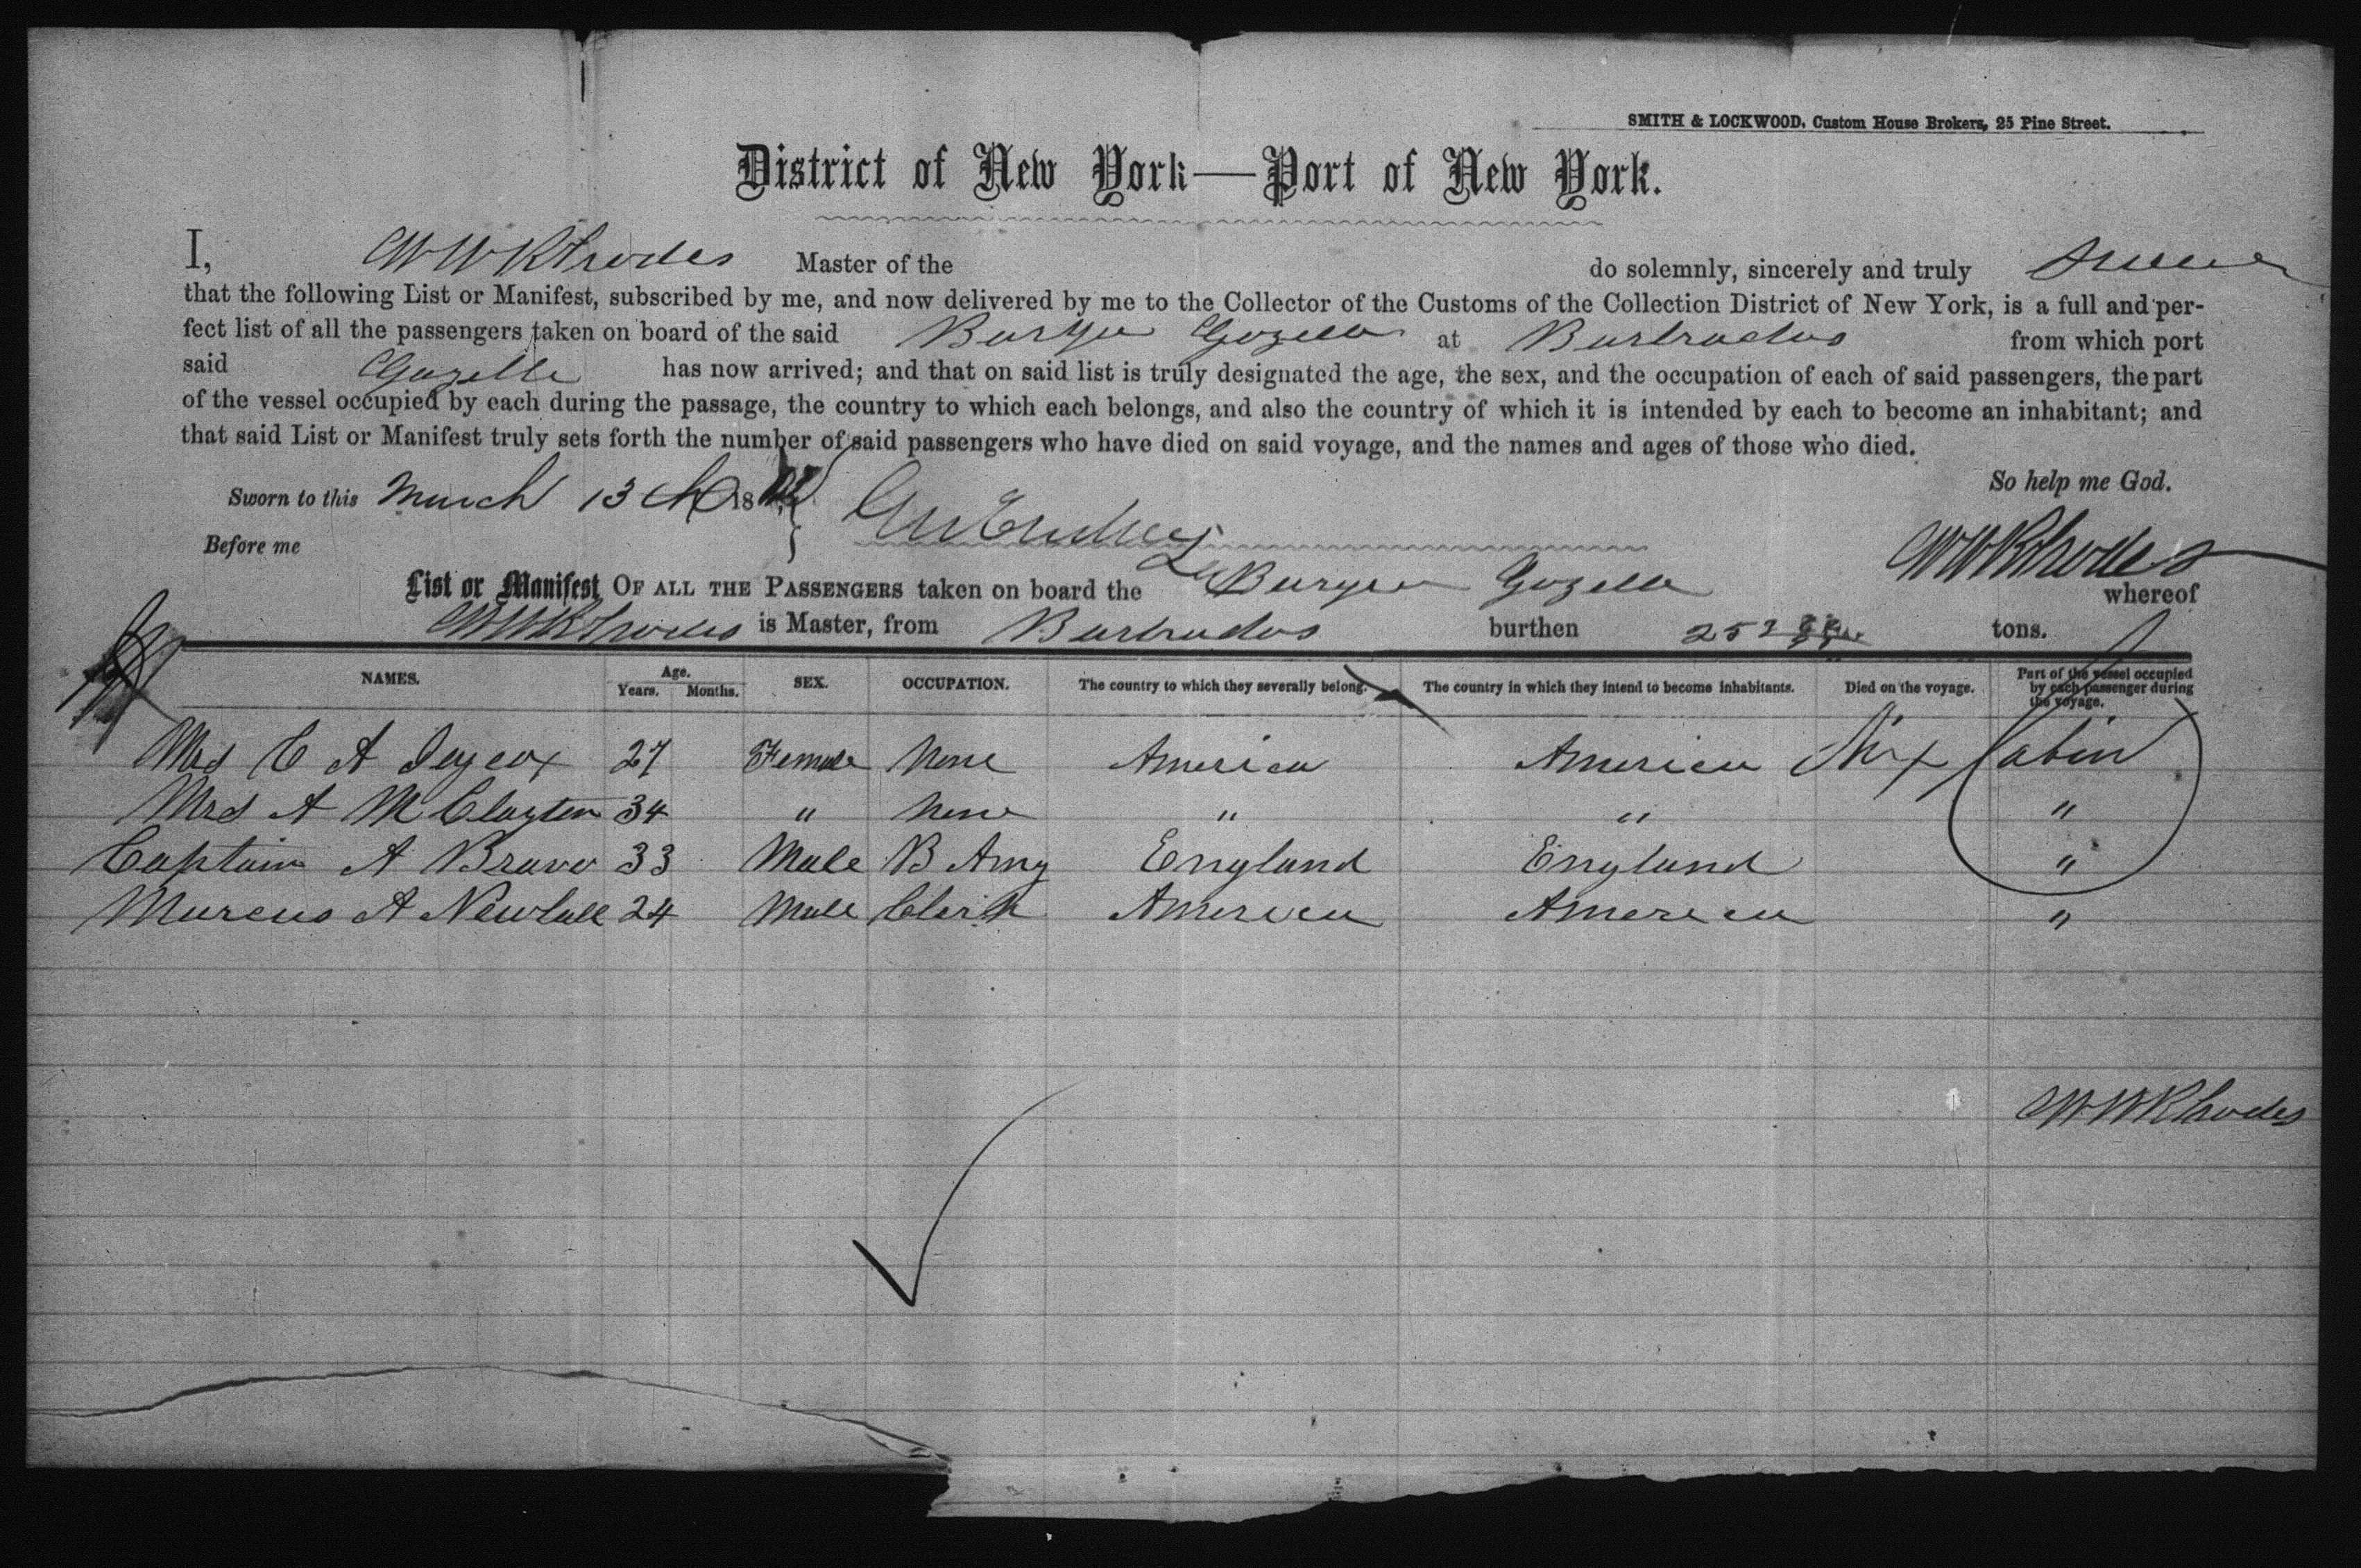 SMITH & LOCKWOOD, Custom House Brokers, 25 Pine Street.
District of New York—Port of New York.
I, W W Rhodes Master of the do solemnly, sincerely and truly swear
that the following List or Manifest, subscribed by me, and now delivered by me to the Collector of the Customs of the Collection District of New York, is a full and per-
fect list of all the passengers taken on board of the said Barque Gazelle at Barbados from which port
said Gazelle has now arrived; and that on said list is truly designated the age, the sex, and the occupation of each of said passengers, the part
of the vessel occupied by each during the passage, the country to which each belongs, and also the country of which it is intended by each to become an inhabitant; and
that said List or Manifest truly sets forth the number of said passengers who have died on said voyage, and the names and ages of those who died.
So help me God.
Sworn to this March 13th 18
Before me
W W Rhodes
List or Manifest OF ALL THE PASSENGERS taken on board the Barque Gazelle whereof
W W Rhodes is Master, from Barbados burthen 252 tons.
NAMES. Age. Years. Months. SEX. OCCUPATION. The country to which they severally belong. The country in which they intend to become inhabitants. Died on the voyage. Part of the vessel occupied by each passenger during the voyage.
Mrs C A Jeycox 27 Female None America America Nix Cabin
Mrs A M Clayton 34 " None " " "
Captain A Bravo 33 Male B Amy England England "
Marcus A Newhall 24 Male Clerk America America "
W W Rhodes